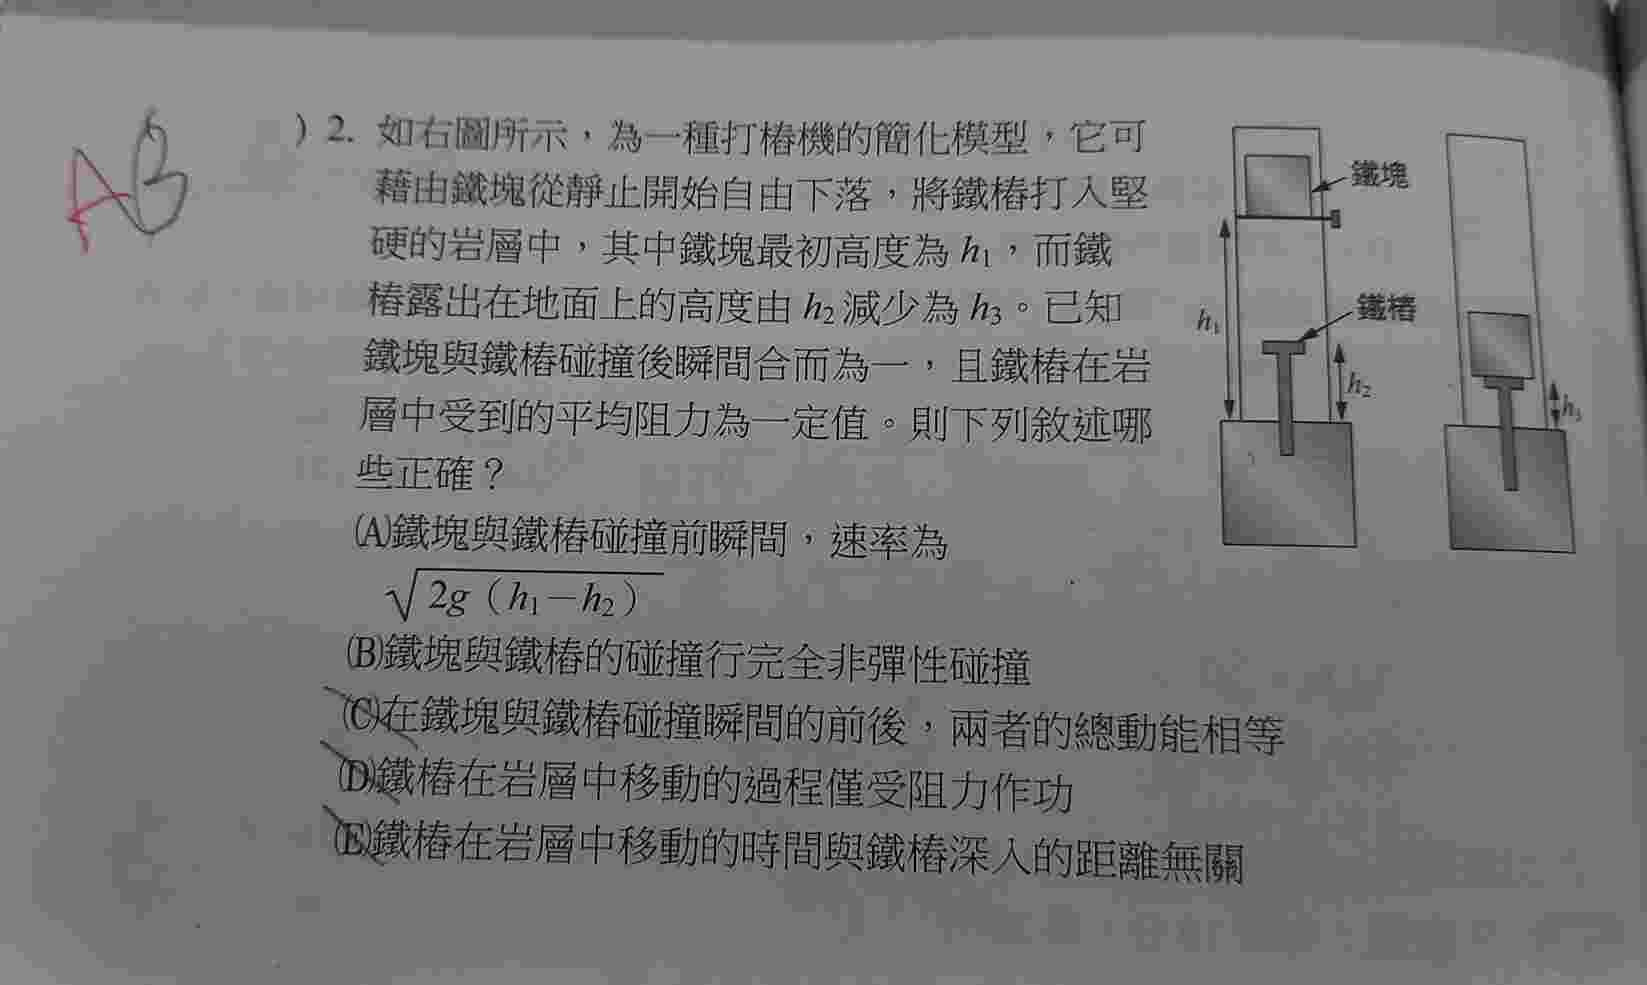 AB
) 2. 如右圖所示，為一種打樁機的簡化模型，它可
藉由鐵塊從靜止開始自由下落，將鐵樁打入堅
硬的岩層中，其中鐵塊最初高度為 h₁，而鐵
樁露出在地面上的高度由 h₂ 減少為 h₃。已知
鐵塊與鐵樁碰撞後瞬間合而為一，且鐵樁在岩
層中受到的平均阻力為一定值。則下列敘述哪
些正確？
(A)鐵塊與鐵樁碰撞前瞬間，速率為
√2g（h₁－h₂）
(B)鐵塊與鐵樁的碰撞行完全非彈性碰撞
(C)在鐵塊與鐵樁碰撞瞬間的前後，兩者的總動能相等
(D)鐵樁在岩層中移動的過程僅受阻力作功
(E)鐵樁在岩層中移動的時間與鐵樁深入的距離無關
鐵塊
鐵樁
h₁
h₂
h₃